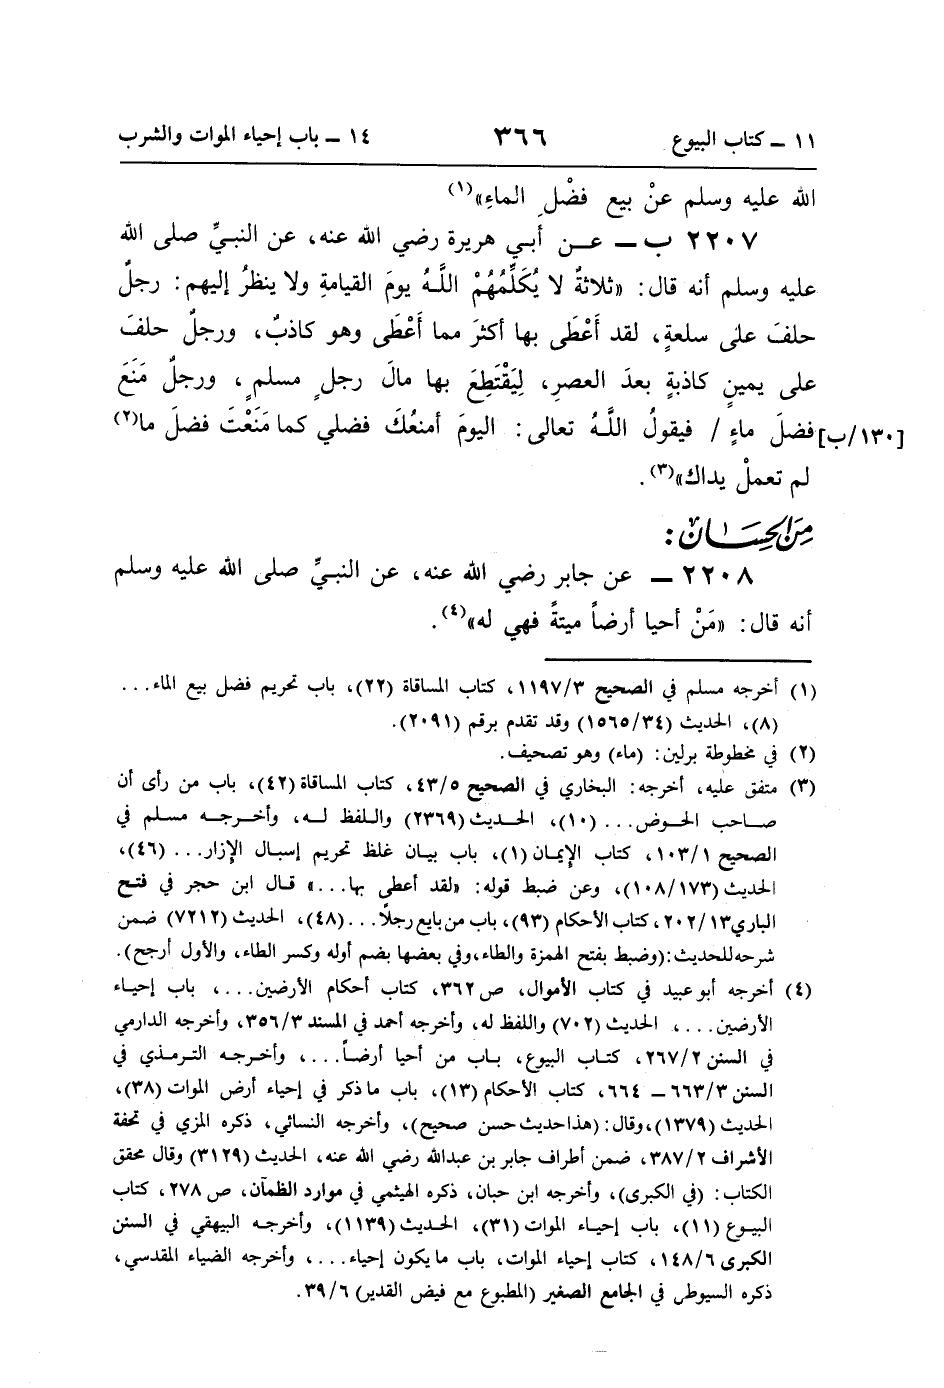 ١١ ـ كتاب البيوع ٣٦٦ ١٤ ـ باب إحياء الموات والشرب
الله عليه وسلم عنْ بيع فضْلِ الماءِ»(١)
٢٢٠٧ ب ـ عن أبي هريرة رضي الله عنه، عن النبيِّ صلى الله
عليه وسلم أنه قال: «ثلاثةٌ لا يُكَلِّمُهُمْ اللَّهُ يومَ القيامةِ ولا ينظرُ إليهم: رجلٌ
حلفَ على سلعةٍ، لقد أَعْطَى بها أكثرَ مما أَعْطَى وهو كاذبٌ، ورجلٌ حلفَ
على يمينٍ كاذبةٍ بعدَ العصرِ، لِيَقْتَطِعَ بها مالَ رجلٍ مسلمٍ، ورجلٌ مَنَعَ
[١٣٠/ب] فضلَ ماءٍ / فيقولُ اللَّهُ تعالى: اليومَ أمنعُكَ فضلي كما مَنَعْتَ فضلَ ما(٢)
لم تعملْ يداك»(٣).
مِنَ الحِسَان:
٢٢٠٨ ـ عن جابر رضي الله عنه، عن النبيِّ صلى الله عليه وسلم
أنه قال: «مَنْ أحيا أرضاً ميتةً فهي له»(٤).
(١) أخرجه مسلم في الصحيح ١١٩٧/٣، كتاب المساقاة (٢٢)، باب تحريم فضل بيع الماء...
(٨)، الحديث (١٥٦٥/٣٤) وقد تقدم برقم (٢٠٩١).
(٢) في مخطوطة برلين: (ماء) وهو تصحيف.
(٣) متفق عليه، أخرجه: البخاري في الصحيح ٤٣/٥، كتاب المساقاة (٤٢)، باب من رأى أن
صاحب الحوض... (١٠)، الحديث (٢٣٦٩) واللفظ له، وأخرجه مسلم في
الصحيح ١٠٣/١، كتاب الإيمان (١)، باب بيان غلظ تحريم إسبال الإزار... (٤٦)،
الحديث (١٠٨/١٧٣)، وعن ضبط قوله: «لقد أعطى بها...» قال ابن حجر في فتح
الباري ٢٠٢/١٣، كتاب الأحكام (٩٣)، باب من بايع رجلاً... (٤٨)، الحديث (٧٢١٢) ضمن
شرحه للحديث: (وضبط بفتح الهمزة والطاء، وفي بعضها بضم أوله وكسر الطاء، والأول أرجح).
(٤) أخرجه أبو عبيد في كتاب الأموال، ص ٣٦٢، كتاب أحكام الأرضين...، باب إحياء
الأرضين...، الحديث (٧٠٢) واللفظ له، وأخرجه أحمد في المسند ٣٥٦/٣، وأخرجه الدارمي
في السنن ٢٦٧/٢، كتاب البيوع، باب من أحيا أرضاً...، وأخرجه الترمذي في
السنن ٦٦٣/٣ ـ ٦٦٤، كتاب الأحكام (١٣)، باب ما ذكر في إحياء أرض الموات (٣٨)،
الحديث (١٣٧٩)، وقال: (هذا حديث حسن صحيح)، وأخرجه النسائي، ذكره المزي في تحفة
الأشراف ٣٨٧/٢، ضمن أطراف جابر بن عبدالله رضي الله عنه، الحديث (٣١٢٩) وقال محقق
الكتاب: (في الكبرى)، وأخرجه ابن حبان، ذكره الهيثمي في موارد الظمآن، ص ٢٧٨، كتاب
البيوع (١١)، باب إحياء الموات (٣١)، الحديث (١١٣٩)، وأخرجه البيهقي في السنن
الكبرى ١٤٨/٦، كتاب إحياء الموات، باب ما يكون إحياء...، وأخرجه الضياء المقدسي،
ذكره السيوطي في الجامع الصغير (المطبوع مع فيض القدير) ٣٩/٦.